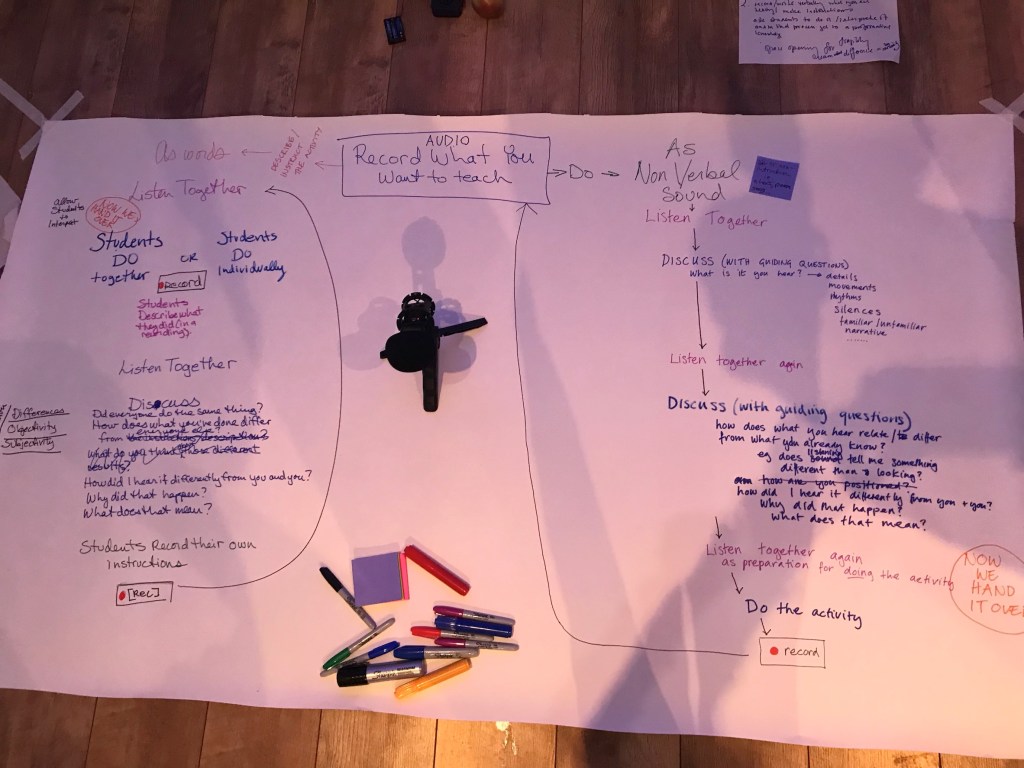 AUDIO
Record What You
Want to teach
As words
DESCRIBE /
INSTRUCT
THE ACTIVITY
Listen Together
allow
Students
to
Interpret
Students
DO
together
OR
Students
DO
individually
Record
Students
Describe what
they did (in a
recording).
Listen Together
Discuss
Did everyone do the same thing?
How does what you've done differ
from everyone else?
the instructions/description?
What do you think
those different
results?
How did I hear it differently from you and you?
Why did that happen?
What does that mean?
/ Differences
Objectivity
Subjectivity
Students Record their own
instructions
[REC]
Do
AS
Non Verbal
Sound
Listen Together
DISCUSS (WITH GUIDING QUESTIONS)
What is it you hear?
details
movements
rhythms
silences
familiar/unfamiliar
narrative
.....
Listen together again
Discuss (with guiding questions)
how does what you hear relate/to differ
from what you already know?
eg does listening sound tell me something
different than looking?
how are you positioned?
how did I hear it differently from you + you?
Why did that happen?
What does that mean?
Listen together again
as preparation for doing the activity
Do the activity
record
NOW
WE
HAND
IT OVER
2.